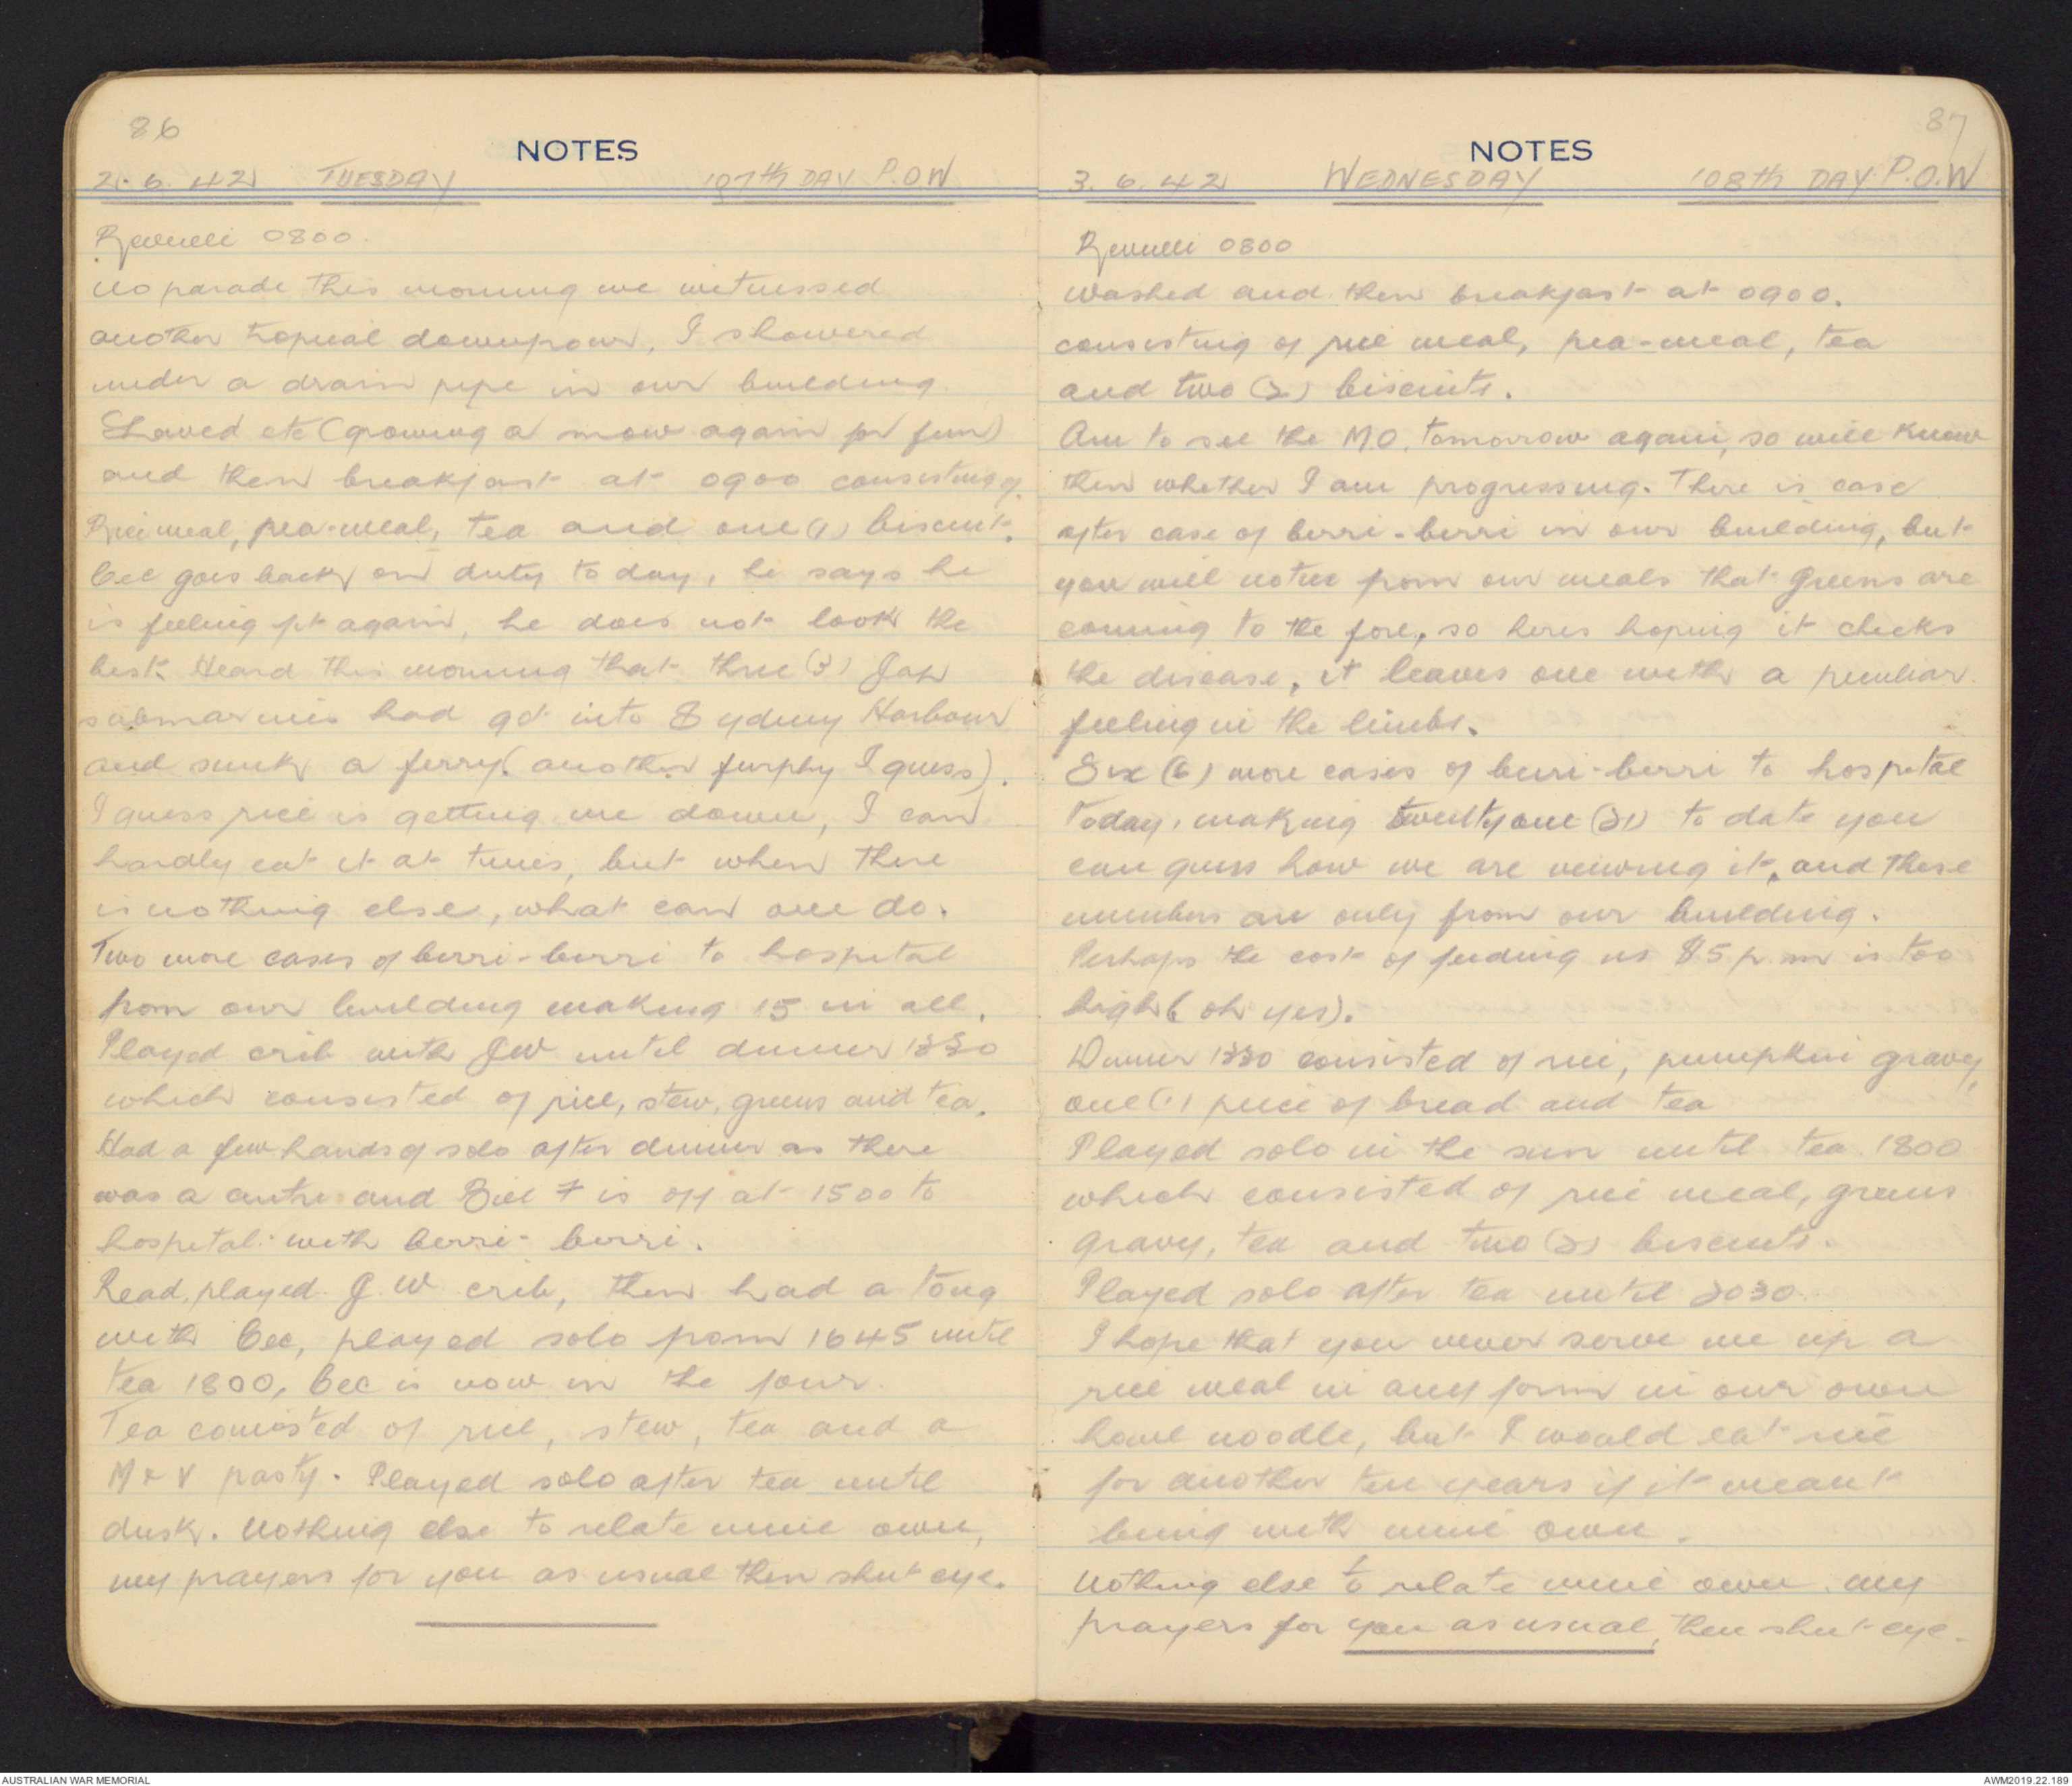 86
NOTES
2. 6. 42 TUESDAY 107th DAY P.O.W
Revielli 0800.
No parade this morning we witnessed
another tropical downpour, I showered
under a drain pipe in our building.
Shaved etc (growing a mow again for fun)
and then breakfast at 0900 consisting of
Rice meal, pea-meal, tea and one (1) biscuit.
Cec goes back on duty to day, he says he
is feeling fit again, he does not look the
best. Heard this morning that three (3) Jap
submarines had got into Sydney Harbour
and sunk a ferry (another furphy I guess).
I guess rice is getting me down, I can
hardly eat it at times, but when there
is nothing else, what can one do.
Two more cases of berri-berri to hospital
from our building making 15 in all.
Played crib with JW until dinner 1330
which consisted of rice, stew, greens and tea.
Had a few hands of solo after dinner as there
was a and Bill F is off at 1500 to
hospital with berri-berri.
Read, played J.W crib, then had a tong
with Cec, played solo from 1645 until
tea 1800, Cec is now in the four.
Tea consisted of rice, stew, tea and a
M & V pasty. Played solo after tea until
dusk. Nothing else to relate mine own,
my prayers for you as usual then shut eye.
87
NOTES
3. 6. 42 WEDNESDAY 108th DAY P.O.W
Revielli 0800
Washed and then breakfast at 0900.
consisting of rice meal, pea-meal, tea
and two (2) biscuits.
Am to see the M.O. tomorrow again, so will know
then whether I am progressing. There is case
after case of berri-berri in our building, but
you will notice from our meals that greens are
coming to the fore, so heres hoping it checks
the disease, it leaves one with a peculiar
feeling in the limbs.
Six (6) more cases of berri-berri to hospital
today, making twentyone (21) to date you
can guess how we are veiwing it, and these
numbers are only from our building.
Perhaps the cost of feeding us $5 p.m is too
high (oh yes).
Dinner 1330 consisted of rice, pumpkin gravy,
one (1) piece of bread and tea
Played solo in the sun until tea 1800
which consisted of rice meal, greens
gravy, tea and two (2) biscuits.
Played solo after tea until 2030.
I hope that you never serve me up a
rice meal in any form in our own
home noodle, but I would eat rice
for another ten years if it meant
being with mine own.
Nothing else to relate mine own, my
prayers for you as usual, then shut eye.
AUSTRALIAN WAR MEMORIAL
AWM2019.22.189